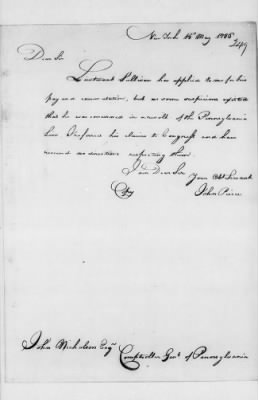 New York 16th May 1786
249
Dear Sir
Lieutenant Sullivan has applied to me for his
pay and commutation, but as some suspicions existed
that he was concerned in a revolt of the Pennsylvania
Line I referred his claims to Congress and have
received no directions respecting them.
I am Dear Sir
Your Obt Servant
John Pierce
John Nicholson Esqr Comptroller Genl of Pennsylvania